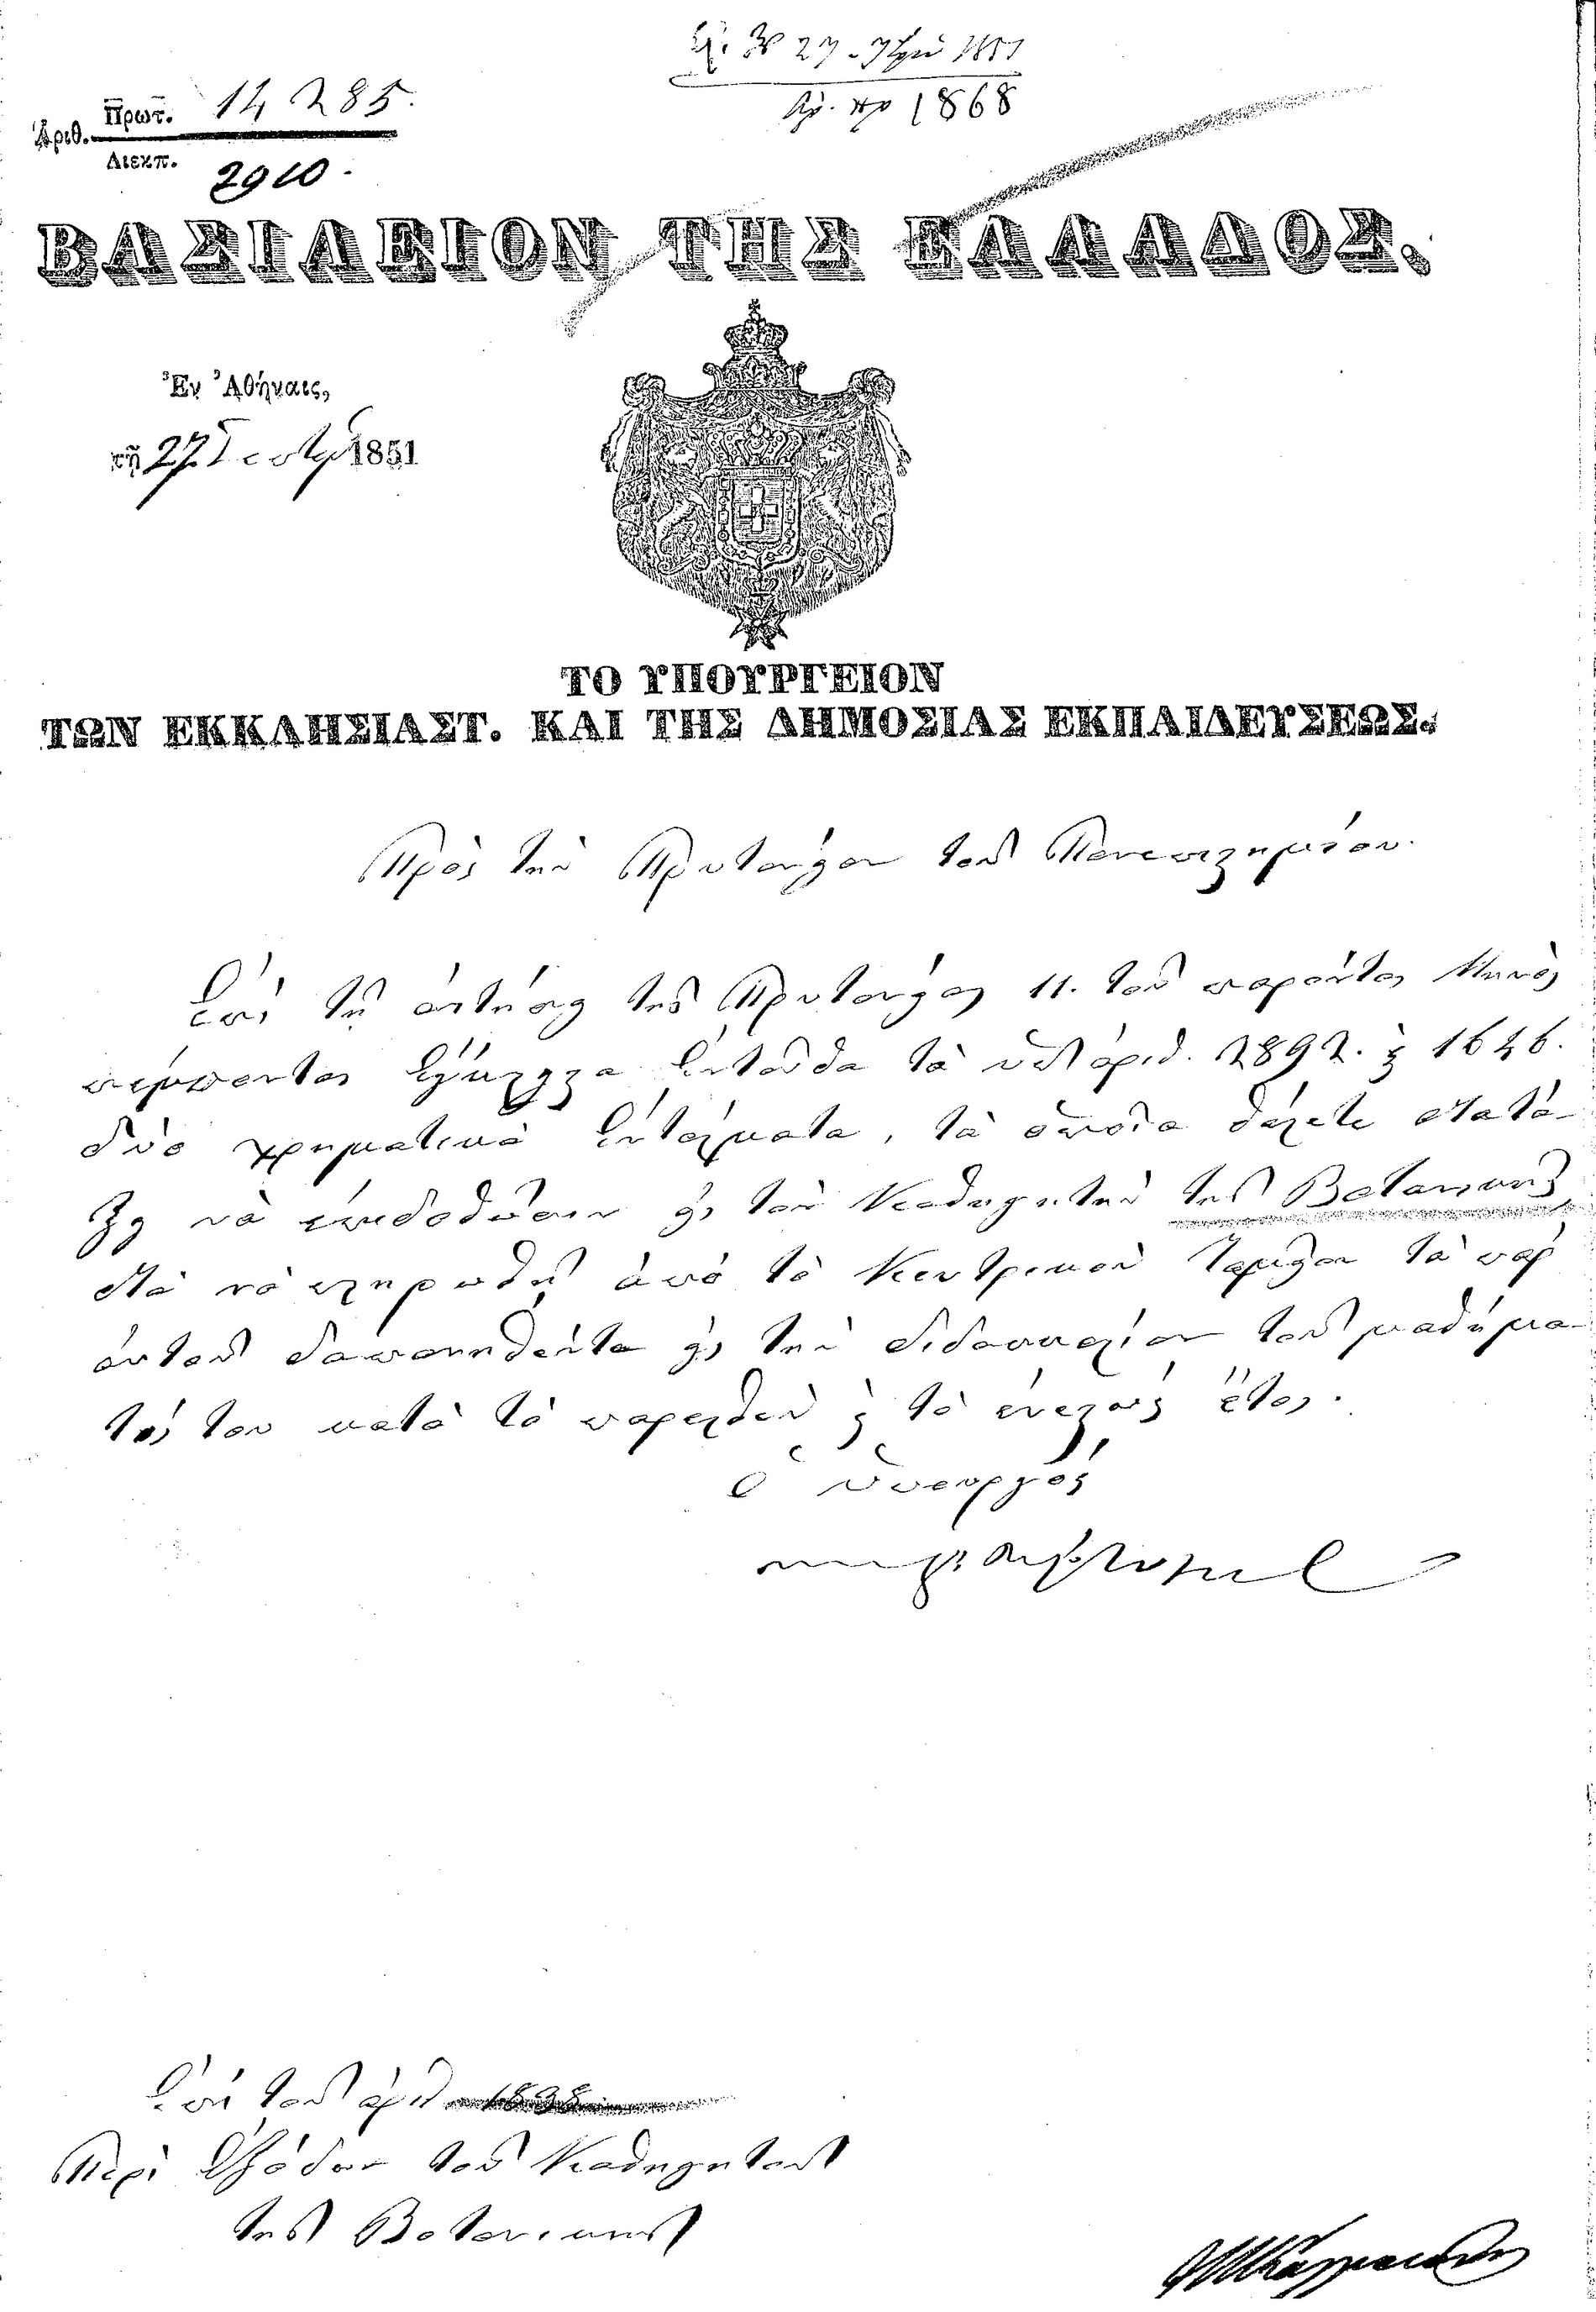 27 1851
Ἀρ. πρ 1868
Πρωτ. 14285.
Ἀριθ.
Διεκπ. 2910.
ΒΑΣΙΛΕΙΟΝ ΤΗΣ ΕΛΛΑΔΟΣ.
Ἐν Ἀθήναις,
τῇ 27 Σεπτβρ 1851
ΤΟ ΥΠΟΥΡΓΕΙΟΝ
ΤΩΝ ΕΚΚΛΗΣΙΑΣΤ. ΚΑΙ ΤΗΣ ΔΗΜΟΣΙΑΣ ΕΚΠΑΙΔΕΥΣΕΩΣ.
Πρὸς τὴν Πρυτανείαν τοῦ Πανεπιστημίου.
Ἐπὶ τῇ αἰτήσει τῆς Πρυτανείας 11. τοῦ παρόντος Μηνὸς
πέμπονται ἐγκλείστως ἐνταῦθα τὰ ὑπ' ἀριθ. 2892. καὶ 1646.
δύο χρηματικὰ ἐντάλματα, τὰ ὁποῖα θέλετε διατά-
ξει νὰ ἐπιδοθῶσιν εἰς τὸν Καθηγητὴν τῆς Βοτανικῆς,
διὰ νὰ πληρωθῇ ἀπὸ τὸ Κεντρικὸν Ταμεῖον τὰ παρ'
αὐτοῦ δαπανηθέντα εἰς τὴν διδασκαλίαν τοῦ μαθήμα-
τός του κατὰ τὸ παρελθὸν καὶ τὸ ἐνεστὼς ἔτος.
Ὁ Ὑπουργός
Ἐπὶ τοῦ ἀριθ. 1838
Περὶ ἐξόδων τοῦ Καθηγητοῦ
τῆς Βοτανικῆς